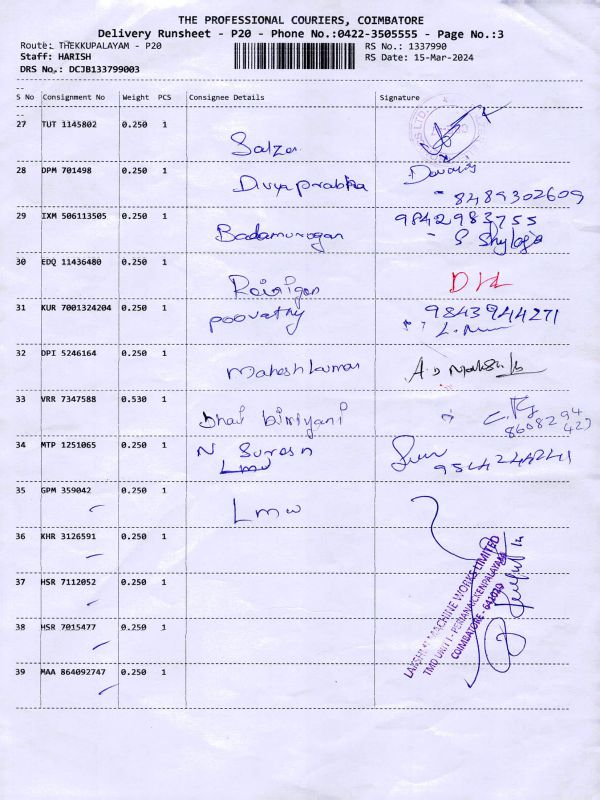 THE PROFESSIONAL COURIERS, COIMBATORE
Delivery Runsheet - P20 - Phone No.:0422-3505555 - Page No.:3
Route: THEKKUPALAYAM - P20
RS No.: 1337990
Staff: HARISH
RS Date: 15-Mar-2024
DRS No.: DCJB133799003
S No Consignment No Weight PCS Consignee Details Signature
27 TUT 1145802 0.250 1
Salzer
28 DPM 701498 0.250 1
Divya prabha
8489302609
29 IXM 506113505 0.250 1
9842983755
Badamurogan
S Shylaja
30 EDQ 11436480 0.250 1
31 KUR 7001324204 0.250 1
poovathy
9843944271
32 DPI 5246164 0.250 1
Mahesh kumar
33 VRR 7347588 0.530 1
bhai biriyani
34 MTP 1251065 0.250 1
N Suresh
Lmw
35 GPM 359042 0.250 1
Lmw
36 KHR 3126591 0.250 1
37 HSR 7112052 0.250 1
38 HSR 7015477 0.250 1
39 MAA 864092747 0.250 1
LAKSHMI MACHINE WORKS LIMITED
TMD UNIT I - PERIANAICKENPALAYAM
COIMBATORE - 641020